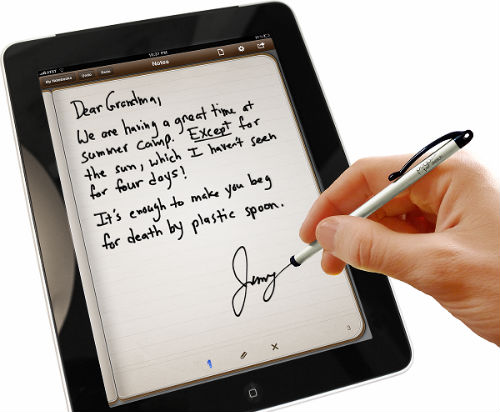 10:37 PM
My Notebooks Undo Redo Notes
Dear Grandma,
We are having a great time at
summer camp. Except for
the sun, which I haven't seen
for four days!
It's enough to make you beg
for death by plastic spoon.
Jenny
3